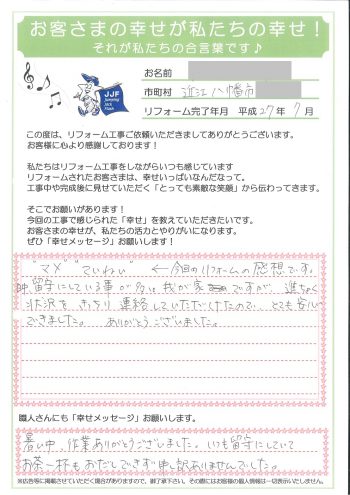 お客さまの幸せが私たちの幸せ！
それが私たちの合言葉です♪
お名前
市町村 近江八幡市
リフォーム完了年月 平成27年7月
JJF
Jumping
Jack
Flash
この度は、リフォーム工事ご依頼いただきましてありがとうございます。
お客様に心より感謝しております！
私たちはリフォーム工事をしながらいつも感じています
リフォームされたお客さまは、幸せいっぱいなんだなって。
工事中や完成後に見せていただく「とっても素敵な笑顔」から伝わってきます。
そこでお願いがあります！
今回の工事で感じられた「幸せ」を教えていただきたいです。
お客さまの幸せが、私たちの活力とやりがいになります。
ぜひ「幸せメッセージ」お願いします！
"マメ" "ていねい" ← 今回のリフォームの感想です。
留守にしている事が多い我が家ですが、進ちょく
状況をきっちり連絡していただけたので、とても安心
できました。 ありがとうございました。
職人さんにも「幸せメッセージ」お願いします。
暑い中、作業ありがとうございました。いつも留守にしていて
お茶一杯もおだしできず申し訳ありませんでした。
※広告等に掲載させていただく場合がありますので、御了承下さい。その際にはお客様の個人情報は一切表示いたしません。